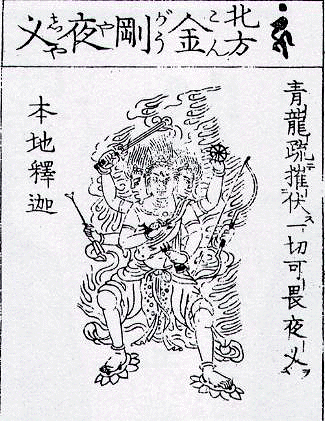 北方金剛夜叉
こんがうやしや
青龍疏ニ摧伏ス一切可畏夜叉ヲ
本地釋迦